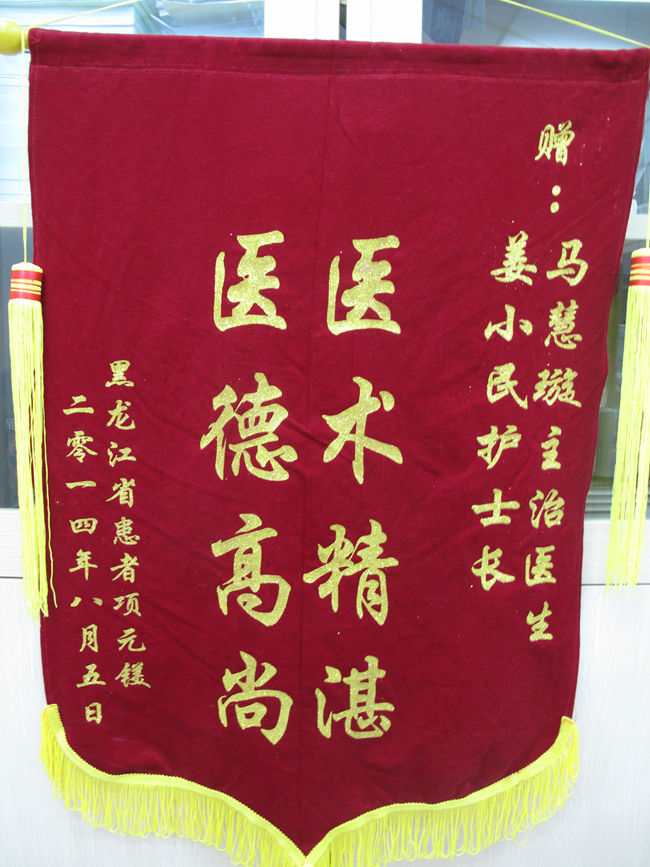 赠：
马慧璇主治医生
姜小民护士长
医术精湛
医德高尚
黑龙江省患者项元镁
二零一四年八月五日